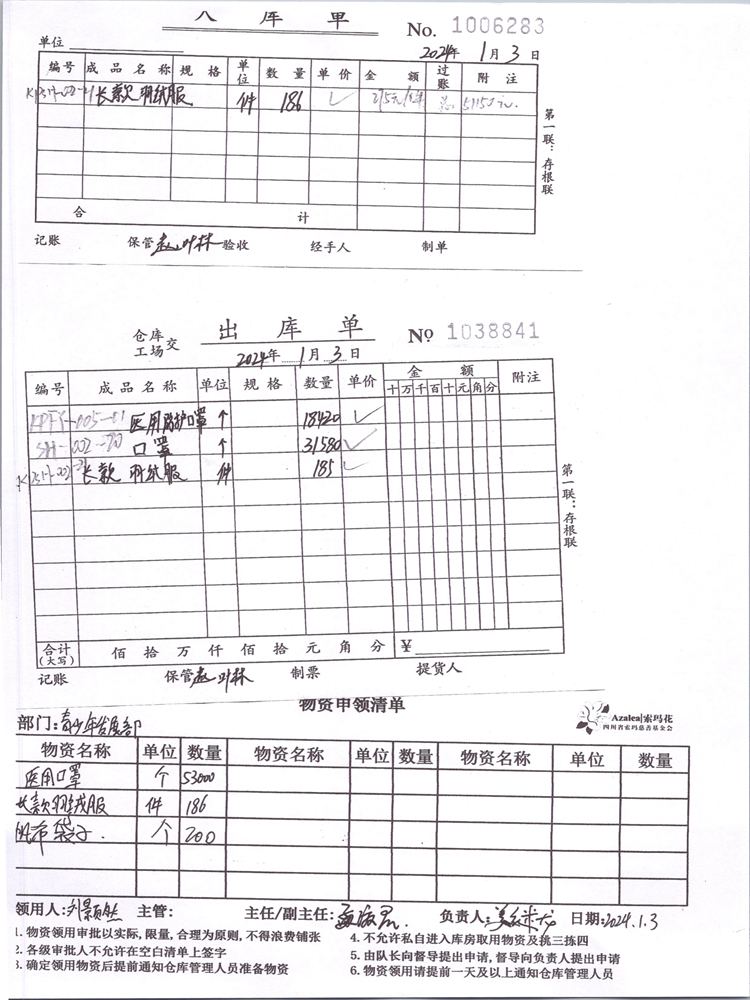 入 库 单 No. 1006283
单位 2024年 1月 3日
编号 成品名称 规格 单位 数量 单价 金额 过账 附注
长款羽绒服 件 186 ✓ 275元/件 总 51150元.
合 计
第一联：存根联
记账 保管 验收 经手人 制单
仓库
工场交 出 库 单 No 1038841
2024年 1月 3日
编号 成品名称 单位 规格 数量 单价 金额 附注
十万千百十元角分
KPFY-005-01 医用防护口罩 个 18420 ✓
SH-002-20 口罩 个 31580 ✓
长款羽绒服 件 185 ✓
第一联：存根联
合计(大写) 佰 拾 万 仟 佰 拾 元 角 分 ¥
记账 保管 制票 提货人
物资申领清单
Azalea|索玛花
四川省索玛慈善基金会
部门：青少年发展部
物资名称 单位 数量 物资名称 单位 数量 物资名称 单位 数量
医用口罩 个 53000
长款羽绒服 件 186
帆布袋子. 个 200
领用人: 主管： 主任/副主任: 负责人: 日期:2024.1.3
1. 物资领用审批以实际, 限量, 合理为原则, 不得浪费铺张
2. 各级审批人不允许在空白清单上签字
3. 确定领用物资后提前通知仓库管理人员准备物资
4. 不允许私自进入库房取用物资及挑三拣四
5. 由队长向督导提出申请, 督导向负责人提出申请
6. 物资领用请提前一天及以上通知仓库管理人员